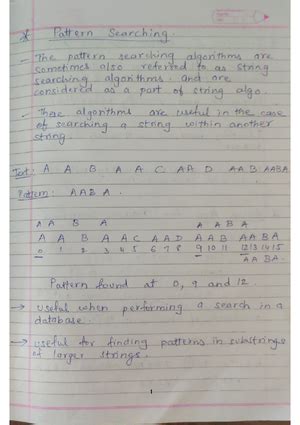 * Pattern Searching.
- The pattern searching algorithms are
sometimes also referred to as string
searching algorithms. and are
considered as a part of string algo.
- These algorithms are useful in the case
of searching a string within another
string.
Text: A A B A A C AA D AA B AABA
Pattern: AABA.
A A B A A A B A
A A B A A C A A D A A B A A B A
0 1 2 3 4 5 6 7 8 9 10 11 12 13 14 15
AA BA
Pattern found at 0, 9 and 12.
→ useful when performing a search in a
database.
→ useful for finding patterns in substrings
of larger strings.
1